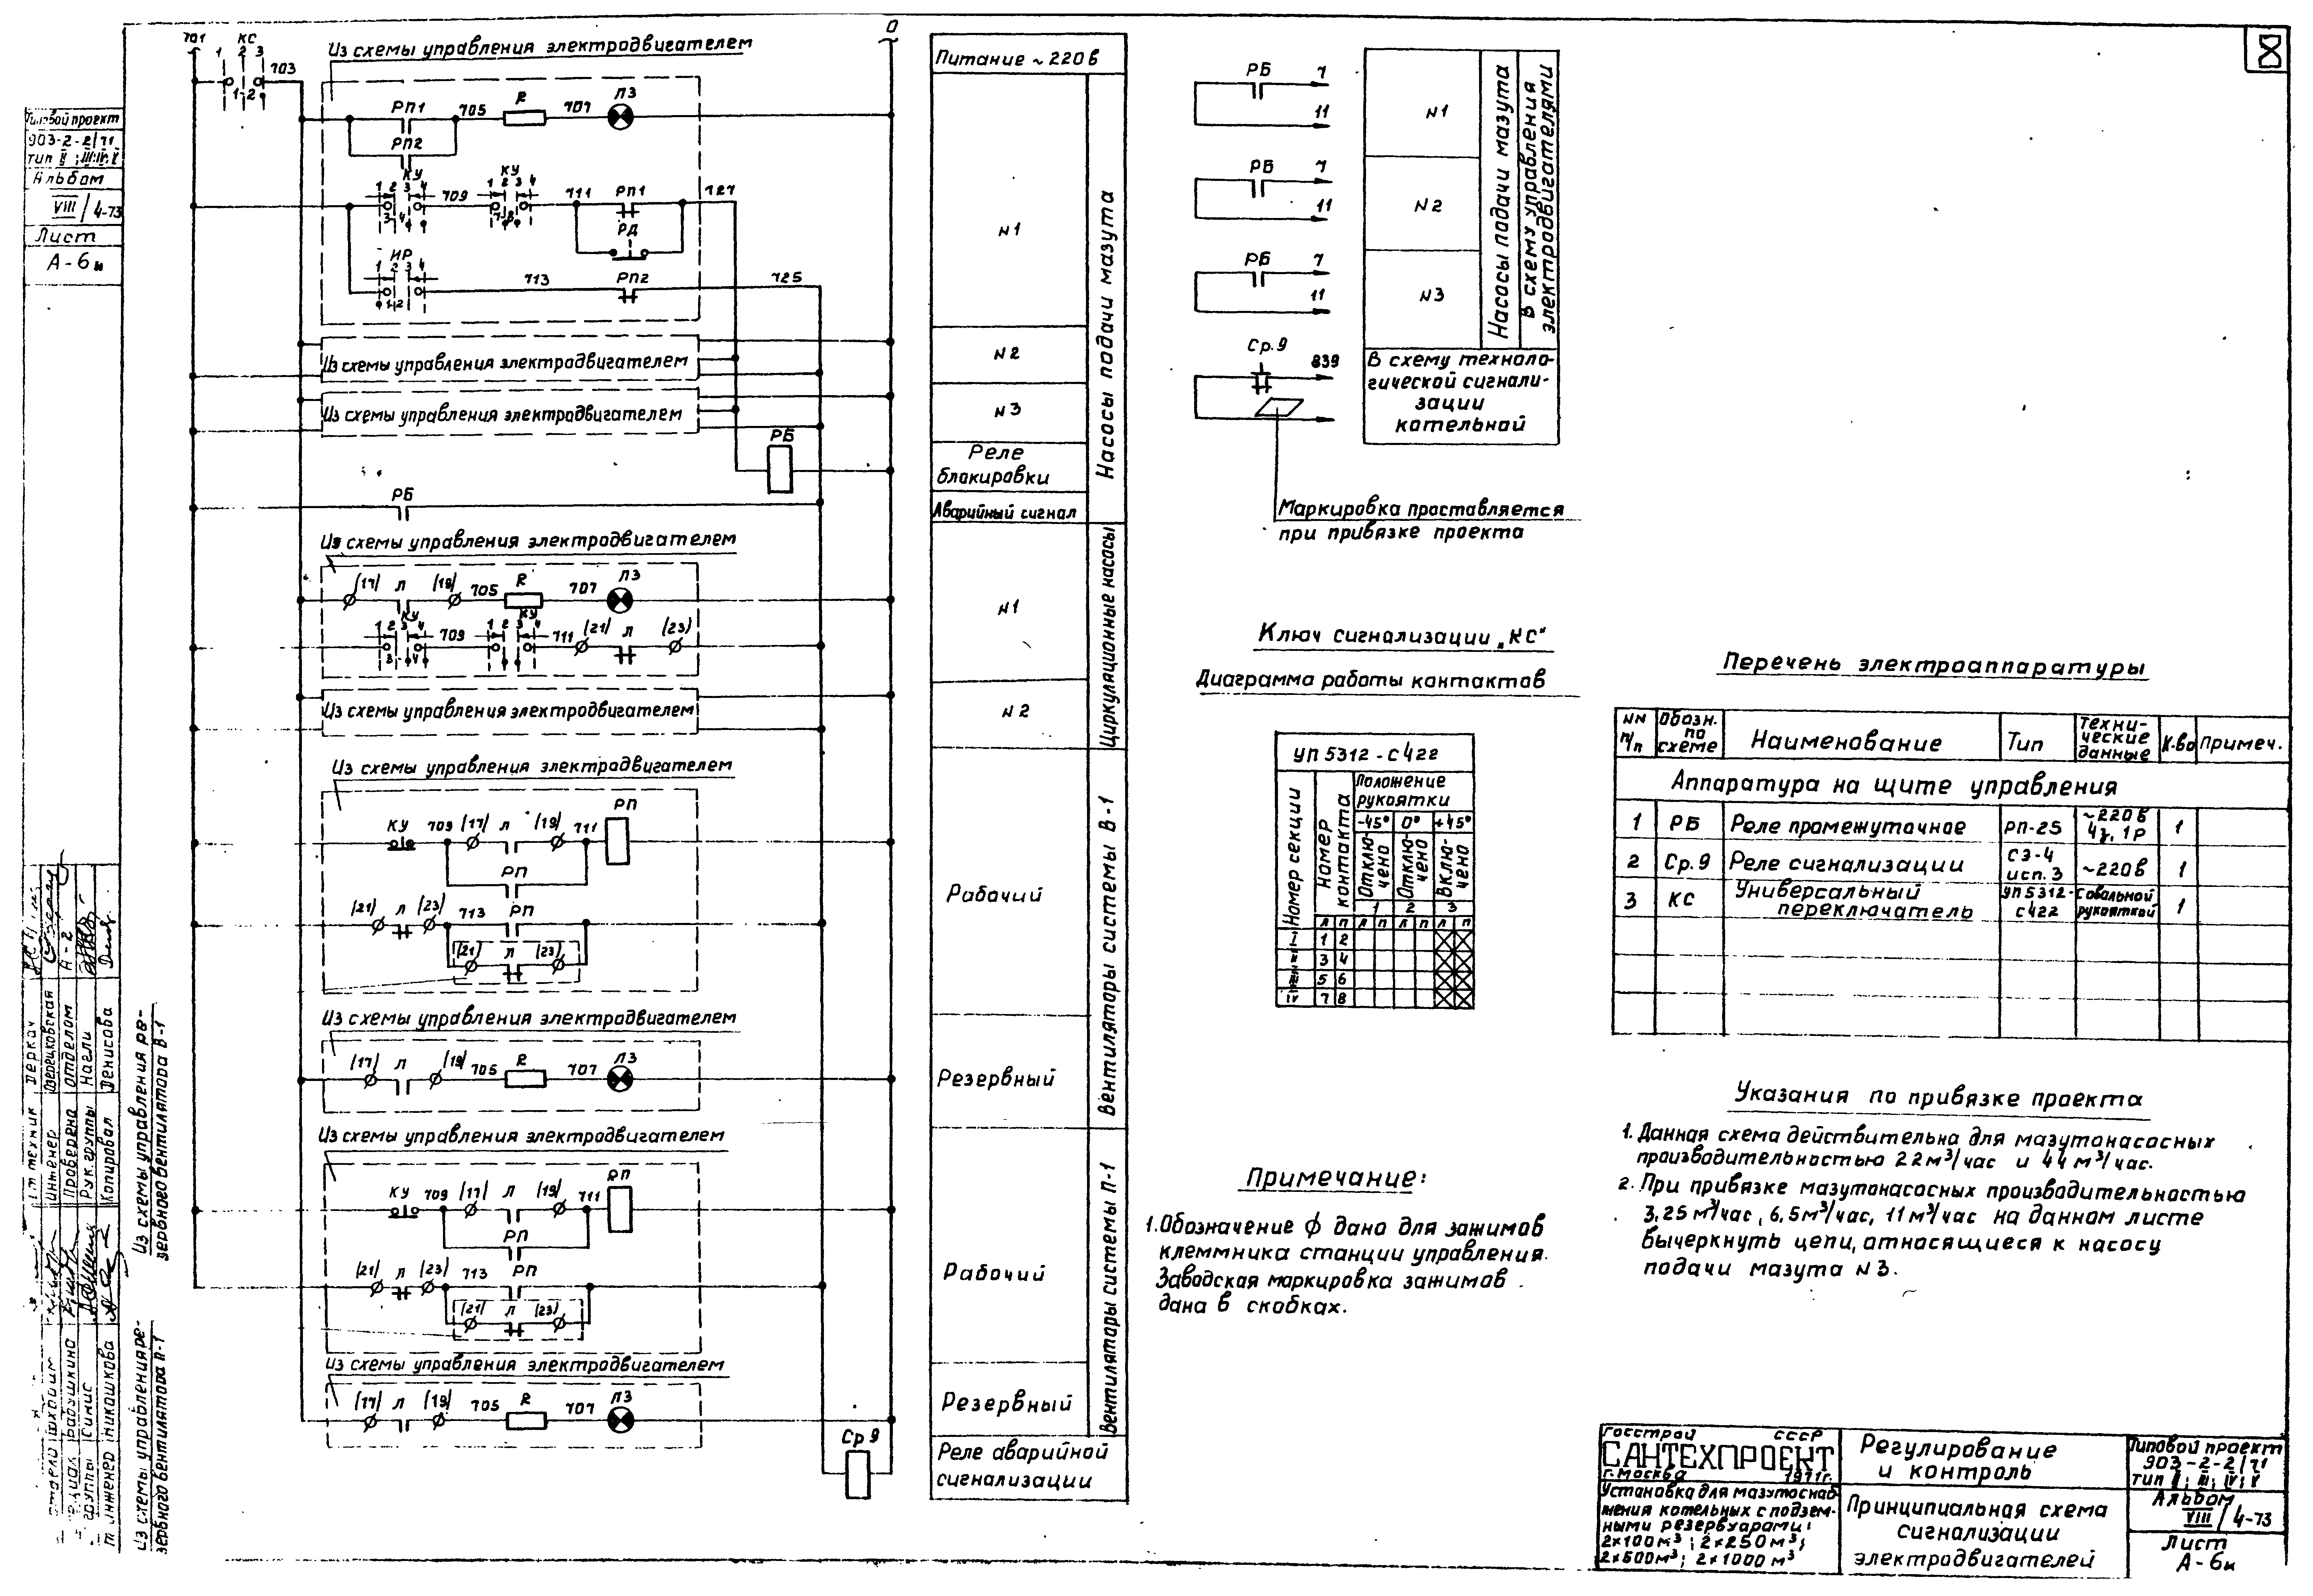 Типовой проект
903-2-2/71
тип II; III; IV; V
Альбом
VIII / 4-73
Лист
А-6и
701
1 КС 2 3
703
1-2
О
Из схемы управления электродвигателем
РП1
705
R
707
ЛЗ
РП2
КУ
1 2 3 4
709
КУ
1 2 3 4
711
РП1
727
3 4
7 8
РД
ИР
1 2 3 4
1-2
713
РП2
725
Из схемы управления электродвигателем
Из схемы управления электродвигателем
РБ
РБ
Из схемы управления электродвигателем
(17) Л (19) 705 R 707 ЛЗ
КУ
1 2 3 4
709
КУ
1 2 3 4
711 (21) Л (23)
3 4
Из схемы управления электродвигателем
Из схемы управления электродвигателем
КУ 709 (17) Л (19) 711 РП
РП
(21) Л (23) 713 РП
(21) Л (23)
Из схемы управления электродвигателем
(17) Л (19) 705 R 707 ЛЗ
Из схемы управления электродвигателем
КУ 709 (17) Л (19) 711 РП
РП
(21) Л (23) 713 РП
(21) Л (23)
Из схемы управления электродвигателем
(17) Л (19) 705 R 707 ЛЗ
Ср 9
Из схемы управления ре-
зервного вентилятора В-1
Из схемы управления ре-
зервного вентилятора П-1
Питание ~ 220 в
N1
N2
N3
Реле
блокировки
Аварийный сигнал
Насосы подачи мазута
N1
N2
Циркуляционные насосы
Рабочий
Резервный
Вентиляторы системы В-1
Рабочий
Резервный
Вентиляторы системы П-1
Реле аварийной
сигнализации
РБ 7
11
N1
РБ 7
11
N2
РБ 7
11
N3
Насосы подачи мазута
В схему управления
электродвигателями
Ср.9
839
В схему техноло-
гической сигнали-
зации
котельной
Маркировка проставляется
при привязке проекта
Ключ сигнализации „КС"
Диаграмма работы контактов
УП 5312-С422
Номер секции
Номер
контакта
Положение
рукоятки
-45° 0° +45°
Отклю-
чено
Отклю-
чено
Вклю-
чено
1 2 3
Л П Л П Л П Л П
I 1 2
II 3 4
III 5 6
IV 7 8
Примечание:
1. Обозначение ϕ дано для зажимов
клеммника станции управления.
Заводская маркировка зажимов
дана в скобках.
Перечень электроаппаратуры
NN
п/п
Обозн.
по
схеме
Наименование
Тип
Техни-
ческие
данные
К-во
Примеч.
Аппаратура на щите управления
1 РБ Реле промежуточное РП-25 ~220 в 4з, 1р 1
2 Ср.9 Реле сигнализации СЭ-4 исп. 3 ~220 в 1
3 КС Универсальный переключатель УП 5312-С422 С овальной рукояткой 1
Указания по привязке проекта
1. Данная схема действительна для мазутонасосных
производительностью 22 м³/час и 44 м³/час.
2. При привязке мазутонасосных производительностью
3,25 м³/час, 6,5 м³/час, 11 м³/час на данном листе
вычеркнуть цепи, относящиеся к насосу
подачи мазута N3.
Госстрой СССР
САНТЕХПРОЕКТ
г. Москва 1971г.
Установка для мазутоснаб-
жения котельных с подзем-
ными резервуарами:
2×100 м³; 2×250 м³;
2×500 м³; 2×1000 м³
Регулирование
и контроль
Принципиальная схема
сигнализации
электродвигателей
Типовой проект
903-2-2/71
тип II; III; IV; V
Альбом
VIII / 4-73
Лист
А-6и
техник Деркач
Инженер Дворецковская
Проверена отделом А-2
Рук. группы Нагли
Копировал Денисова
Бабушкина
группы Синис
инженер Никашкова